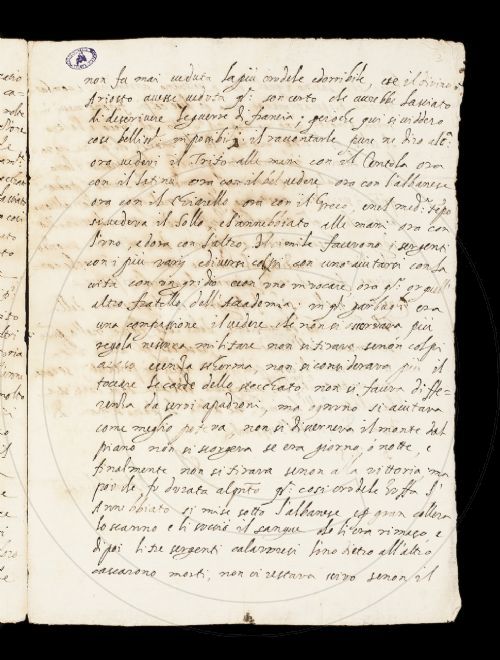 non fu mai veduta la più crudele et orribile, che se il divino
Ariosto avesse veduta q.ta son certo che averebbe lasciato
di descrivere le guerre di francia; perche qui si viddero
cose bellis.me impossibili a il raccontarle, pure ne diro alc.e
ora vedevi il Trita alle mani con il Contola ora
con il latrin ora con il bel vedere, ora con l'albanese
ora con il ora con il Greco, e nel med.o tẽpo
succedeva il Sollo, e l'annebbiato alle mani ora con
l'uno, e dora con l'altro, il simile facevono i sergenti
con i più varij e diversi colpi con uno aiutarsi con la
vita con un grido con uno invocare ora q.to or quell'
altro fratello dell'Accademia; in q.ti garbugli era
una compassione il vedere che non si osservava più
regola nessuna militare non si tirava senon colpi
a caso e senza scherma, non si considerava più il
toccare le carde dello steccato non si faceva diffe-
renza da servi a padroni, ma ognuno si aiutava
come meglio poteva, non si discerneva il monte dal
piano non si scorgeva se era giorno, ò notte, e
finalmente non si tirava senon a la vittoria ma
poi che fu durata alq.to q.ta cosi crudele zuffa l'
Annebbiato si mise sotto l'albanese, e cõ gran collera
lo scannò e li succiò il sangue che li era rimaso, e
dipoi li tre sergenti calavresi l'uno dietro all'altro
cascarono morti, non ci restava vivo senon il